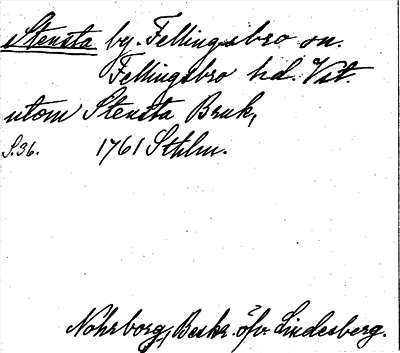 Stensta by. Fellingsbro sn.
Fellingsbro hd. Vst.
utom Stensta Bruk,
S.36. 1761 Sthlm.
Nohrborg, Beskr. öfv. Lindesberg.